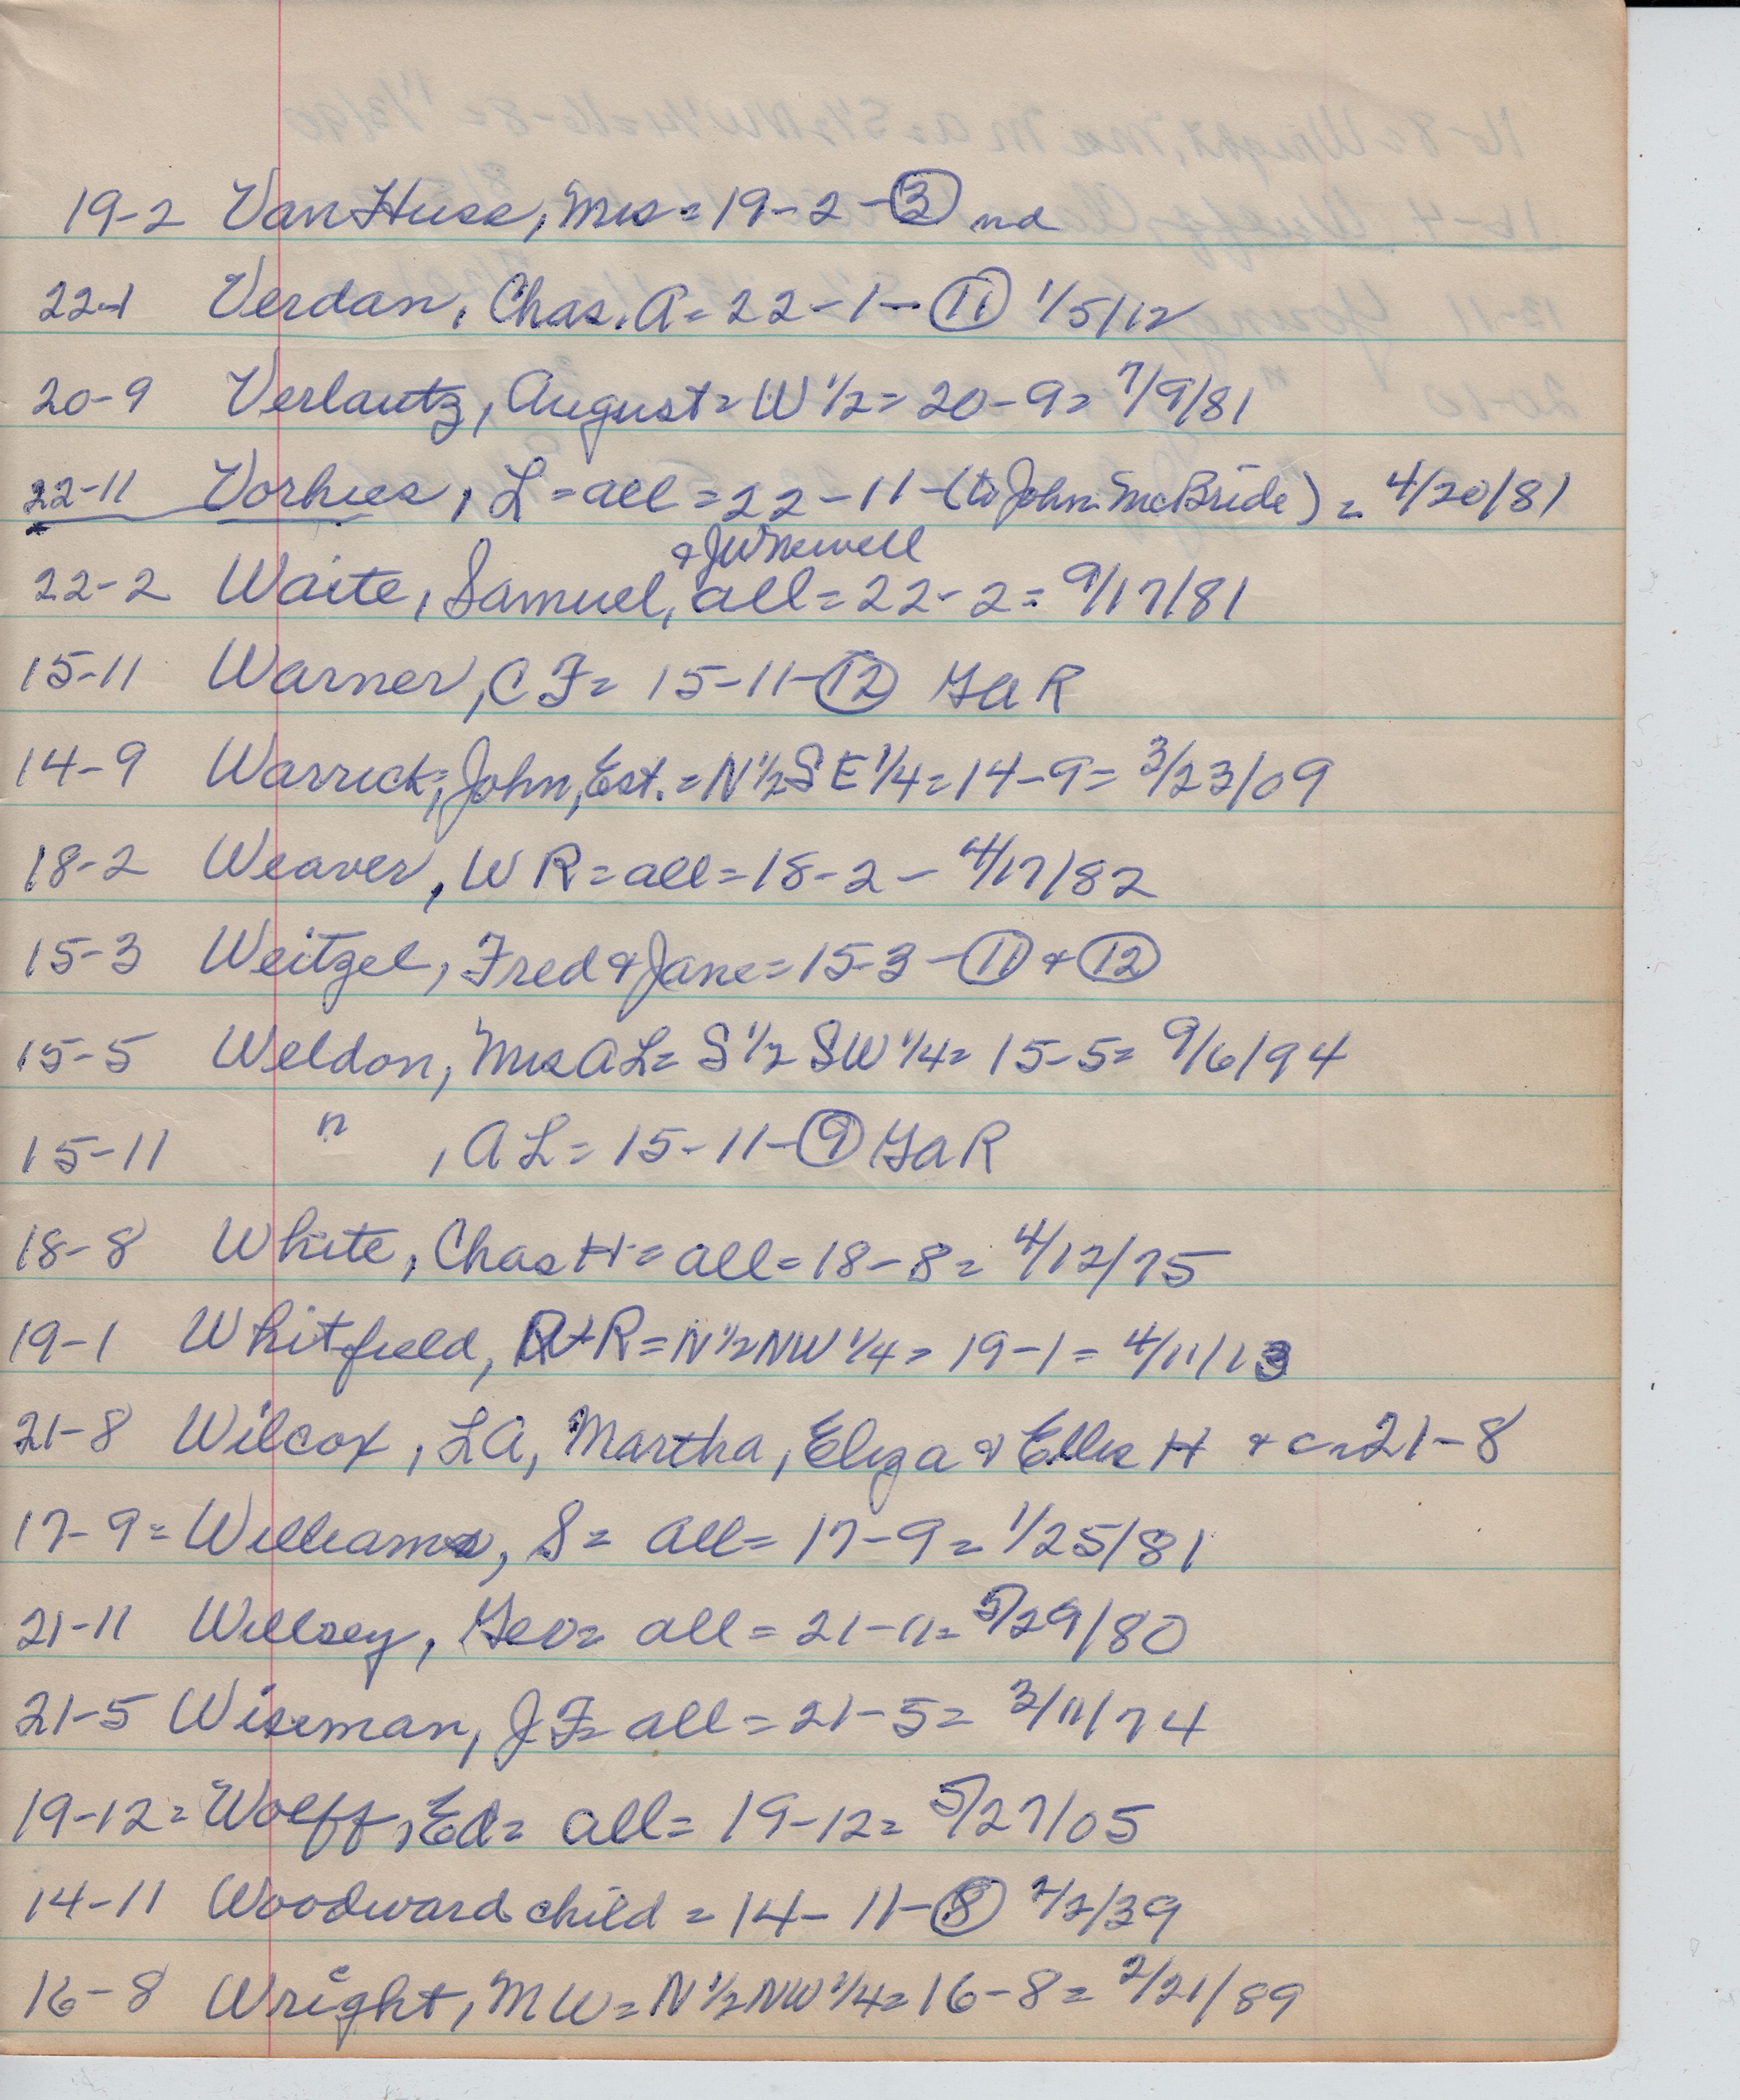 19-2 VanHuss, Mrs = 19-2-③ nd
22-1 Verdan, Chas. A = 22-1-⑪ 1/5/12
20-9 Verlautz, August = W 1/2 = 20-9 = 7/9/81
22-11 Vorhies, L = all = 22-11-(to John McBride) = 4/20/81
& JW Newell
22-2 Waite, Samuel, all = 22-2 = 9/17/81
15-11 Warner, C F = 15-11-⑫ GaR
14-9 Warrick, John, Est. = N 1/2 S E 1/4 = 14-9 = 3/23/09
18-2 Weaver, W R = all = 18-2 - 4/17/82
15-3 Weitzel, Fred & Jane = 15-3-⑪ & ⑫
15-5 Weldon, Mrs A L = S 1/2 SW 1/4 = 15-5 = 9/6/94
15-11 " , A L = 15-11-⑨ GaR
18-8 White, Chas H = all = 18-8 = 4/12/75
19-1 Whitfield, R+R = N 1/2 NW 1/4 = 19-1 = 4/11/13
21-8 Wilcox, L A, Martha, Eliza & Ellis H + c = 21-8
17-9 = Williams, S = all = 17-9 = 1/25/81
21-11 Willsey, Geo = all = 21-11 = 5/29/80
21-5 Wiseman, J F = all = 21-5 = 3/11/74
19-12 = Wolff, Ed = all = 19-12 = 5/27/05
14-11 Woodward child = 14-11-⑧ 2/2/39
16-8 Wright, M W = N 1/2 NW 1/4 = 16-8 = 2/21/89